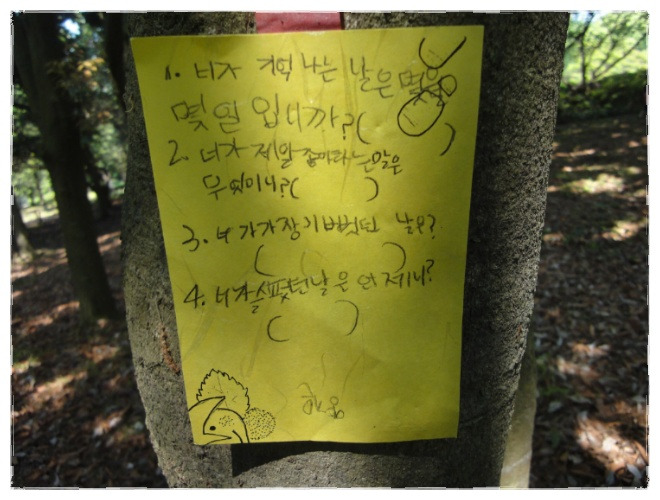 1. 너가 기억 나는 날은 몇월
몇 일 입니까?( )
2. 너가 제일 좋아하는말은
무엇이니?( )
3. 너가가장기뻤던 날은?
( )
4. 너가슬펐던날은 언제니?
( )